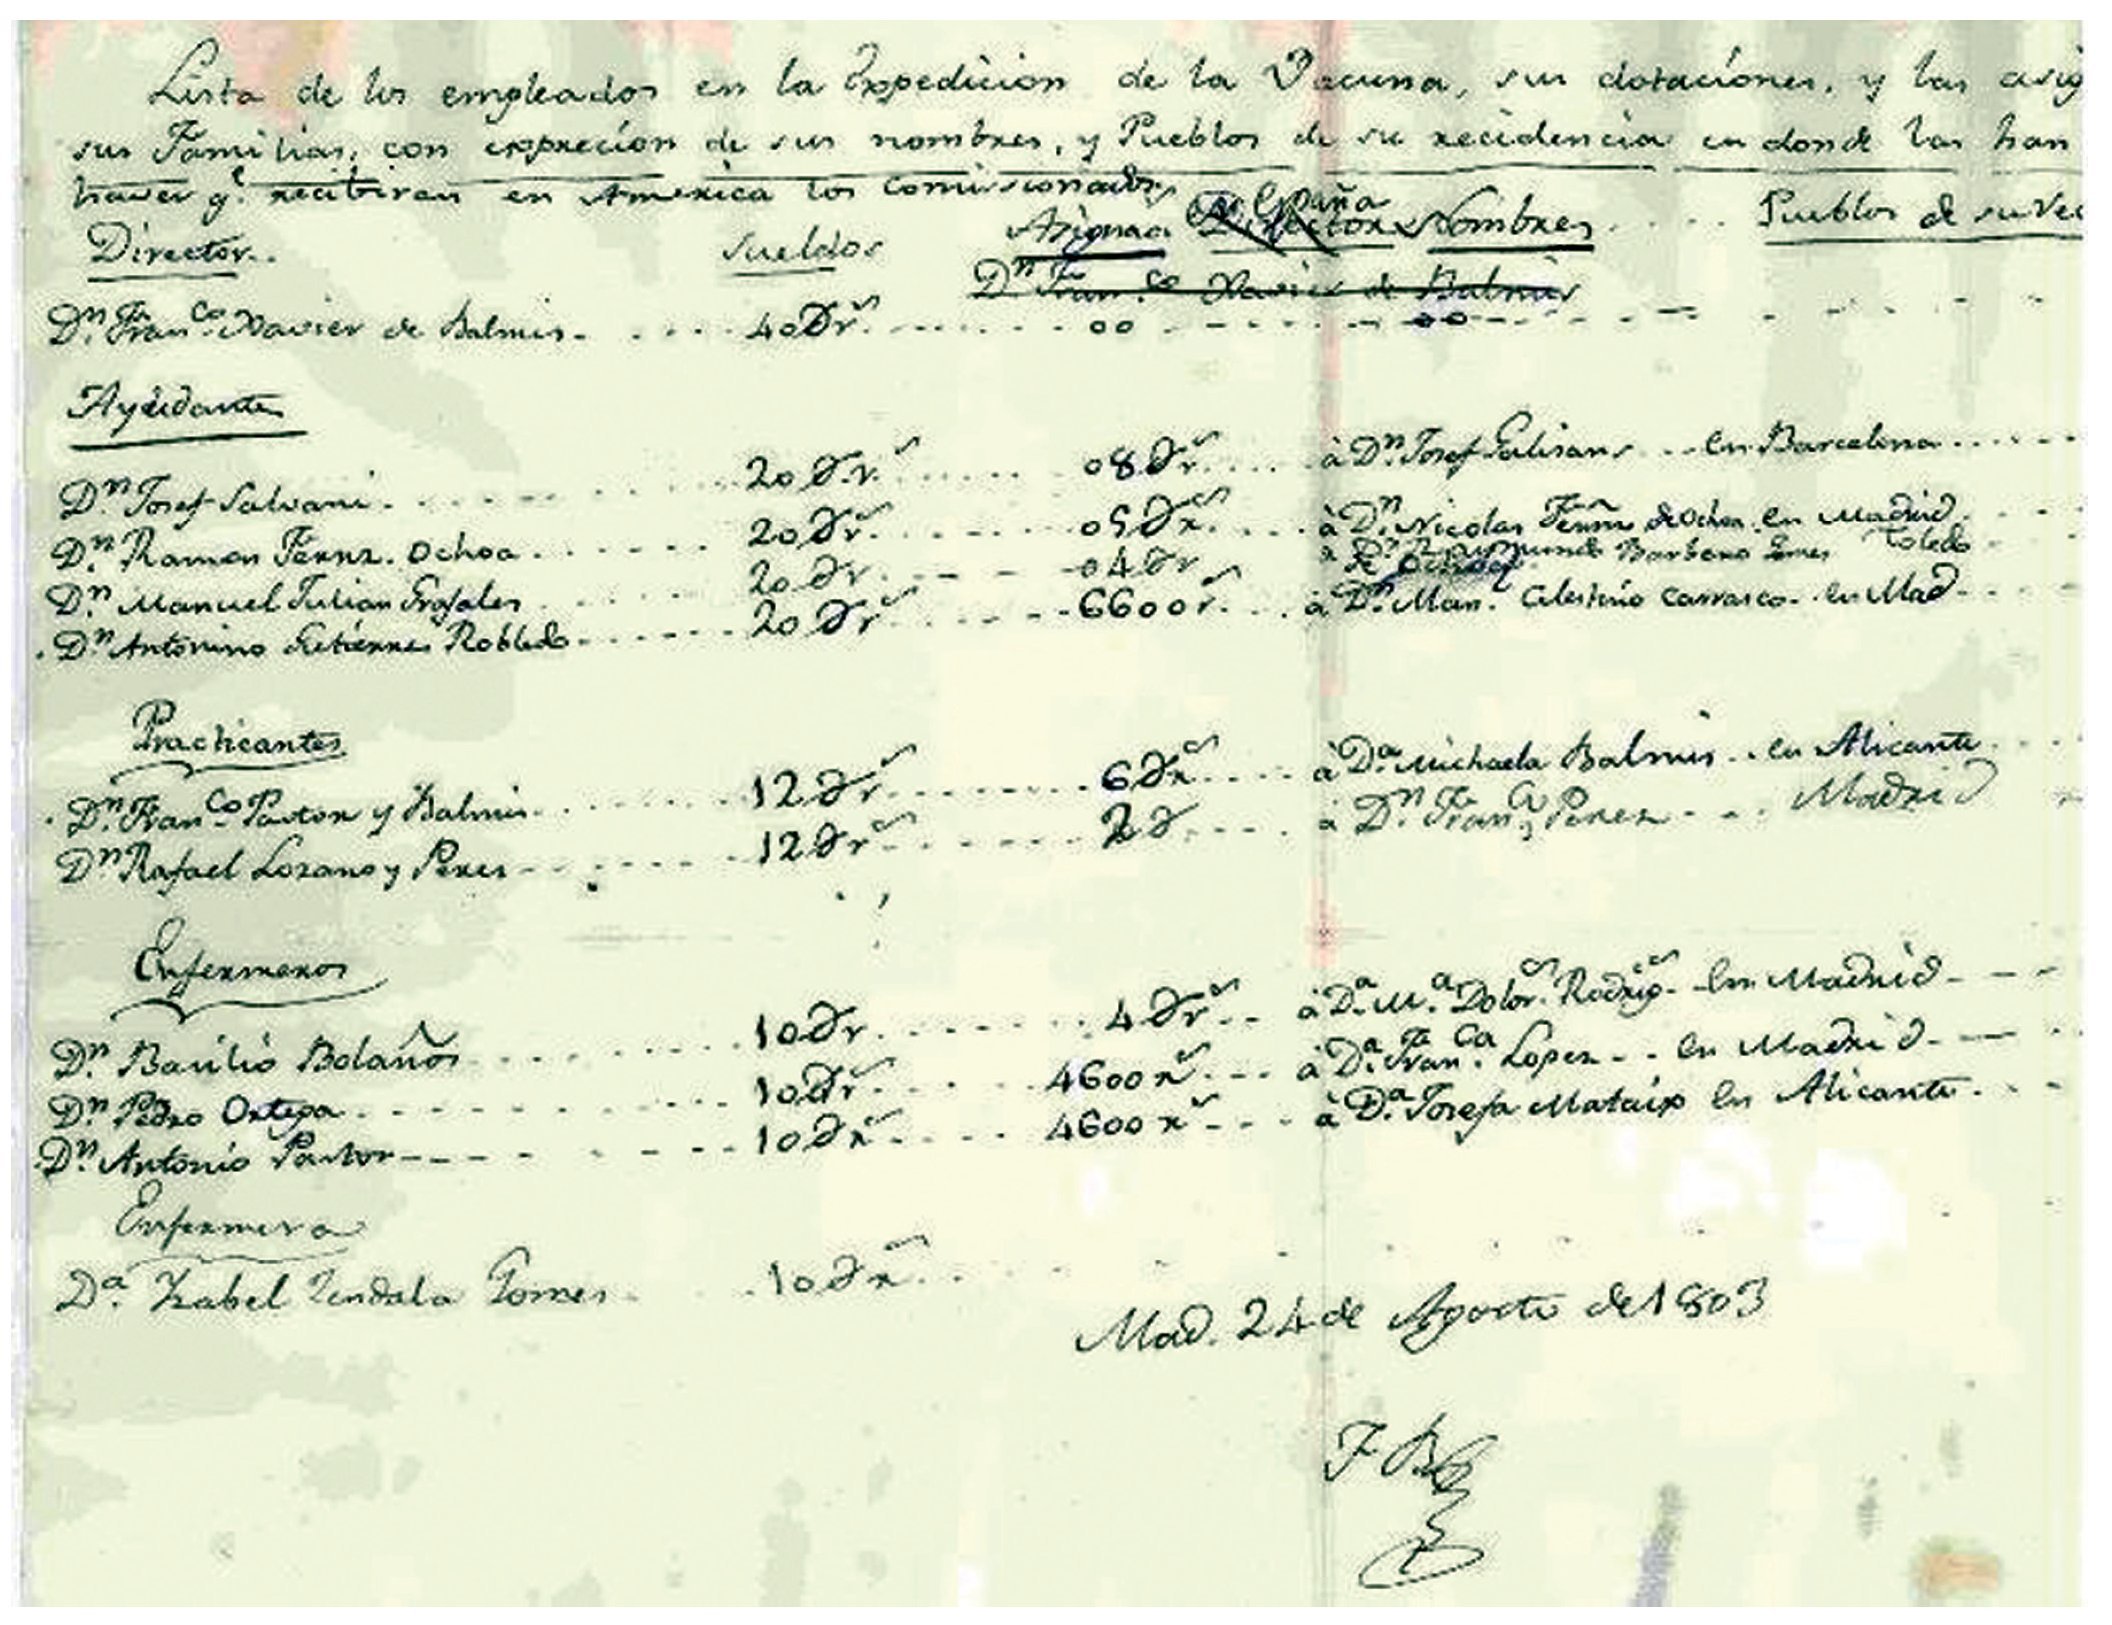 Lista de los empleados en la Expedicion de la Vacuna, sus dotaciones, y las asig
sus Familias, con exprecion de sus nombres, y Pueblos de su recidencia en donde las han
haver q.e recibiran en America los Comisionados
Director. Sueldos Asignao en España Director Nombres Pueblos de su Vec
Dn. Fran.co Xavier de Balmis
Dn. Fran.co Xavier de Balmis 40 Dr.s 00 00
Ayudantes
Dn. Josef Salvani 20 Dr.s 08 Dr.s à Dn. Josef en Barcelona
Dn. Ramon Fernz. Ochoa 20 Dr.s 05 Dr.s à Dn. Nicolas de Ochoa en Madrid
Dn. Manuel Julian Grajales 20 Dr. 04 Dr Barbano Gomes Toledo
Dn. Antonino Gutierres Robledo 20 Dr.s 6600 r.s à Dn. Man.l Celestino Carrasco en Mad
Practicantes
Dn. Fran.co Pastor y Balmis 12 Dr.s 6 Dr.s à Da. Michaela Balmis en Alicante
Dn. Rafael Lozano y Peres 12 Dr.s 2 D à Dn. Fran.co Perez Madrid
Enfermeros
Dn. Basilio Bolaños 10 Dr. 4 Dr.s à Da. Ma. Dolor.s Rodrig.s en Madrid
Dn. Pedro Ortega 10 Dr.s 4600 r.s à Da. Fran.ca Lopez en Madrid
Dn. Antonio Pastor 10 Dr.s 4600 r.s à Da. Josefa Mataix en Alicante
Enfermera
Da. Izabel Zendala Gomes 10 Dr.s
Mad. 24 de Agosto de 1803
F B